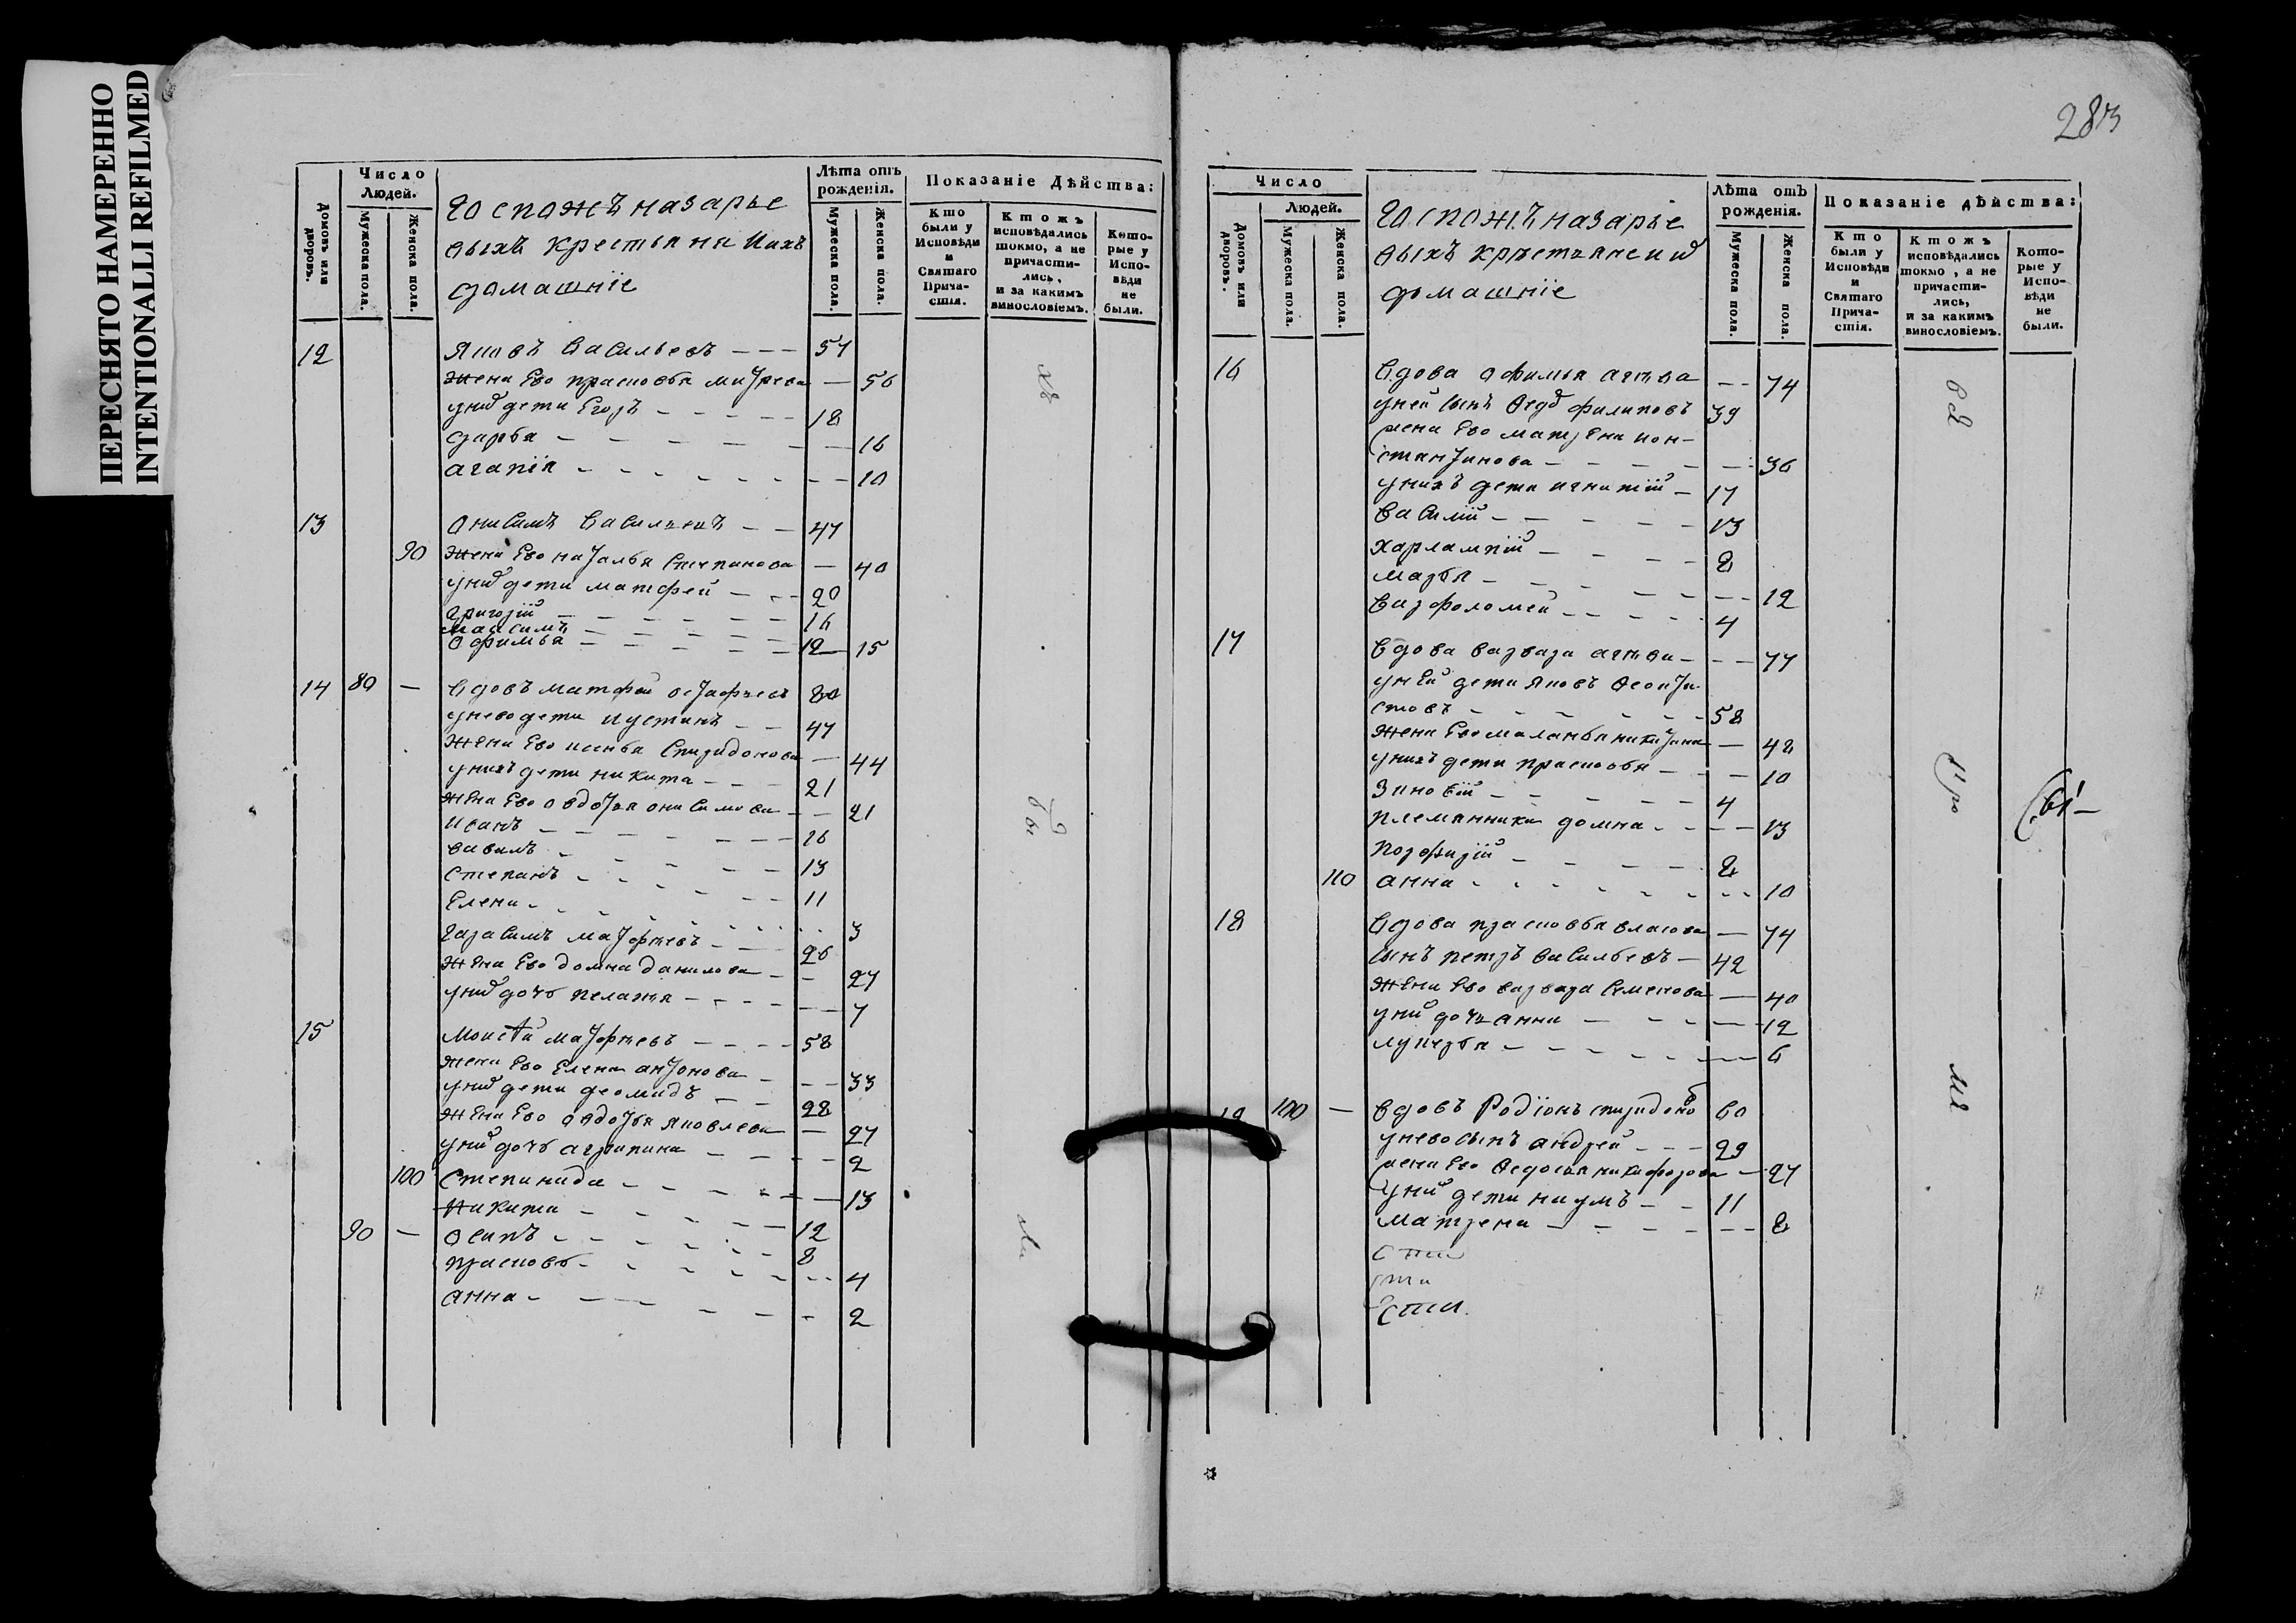 ПЕРЕСНЯТО НАМЕРЕННО
INTENTIONALLI REFILMED
Домовъ или дворовъ.
Число Людей.
Мужеска пола.
Женска пола
госпожъ назарье
выхъ крестьяни ихъ
домашніе
Лѣта отъ рожденія.
Мужеска пола.
Женска пола.
Показаніе Дѣйства:
Кто были у Исповѣди и Святаго Прича- стія.
Ктожъ исповѣдались токмо, а не причасти- лись, и за какимъ винословіемъ.
Кото- рые у Испо- вѣди не были.
12 Яковъ Васильевъ 57
жена Ево прасковья 56
уних дети Егоръ 18
дарья 16
агапія 10
13 Онисимъ Васильевъ 47
90 жена Ево наталья Степанова 40
уних дети матфей 20
григорій 16
максимъ
Офимья 12 15
14 80 — вдовъ матфей остафьевъ 80
унево дети иустинъ 47
жена Ево Спиридонова 44
унихъ дети никита 21
жена Ево овдотья онисимова 21
Иванъ 16
вавилъ 13
Степанъ 11
Елена 3
гарасимъ матфеевъ 26
жена Ево домна данилова 27
уних дочь пелагея 7
15 Моисей матфеевъ 58
жена Ево Елена антонова 33
уних дети деомидъ 28
жена Ево овдотья яковлева 27
уних дочь агрипина 2
100 Степанида 13
Никита 12
90 — Осипъ 8
прасковья 4
анна 2
283
Число
Домовъ или дворовъ.
Людей.
Мужеска пола.
Женска пола.
госпожъ назаріе
выхъ крестьяне их
домашніе
Лѣта отъ рожденія.
Мужеска пола.
Женска пола.
Показаніе дѣйства:
Кто были у Исповѣди и Святаго Прича- стія.
Ктожъ исповѣдались токмо, а не причасти- лись, и за какимъ винословіемъ.
Кото- рые у Испо- вѣди не были.
16 Вдова офимья 74
уней сынъ Ѳедо филиповъ 39
жена Ево матрена кон-
стантинова 36
унихъ дети игнатій 17
Василій 13
Харлампій 8
марья 12
варфоломей 4
17 Вдова варвара 77
уней дети яковъ Ѳеокти
стовъ 58
жена Ево маланья никитина 48
унихъ дети прасковья 10
Зиновій 4
племянники домна 13
порфирій 8
110 анна 10
18 Вдова прасковья власова 74
сынъ петръ васильевъ 42
жена Ево варвара Семенова 40
уних дочь анна 12
лукерья 6
19 100 — Вдовъ Родіонъ спиридоно 60
унево сынъ андрей 29
жена Ево Ѳедосья никифорова 27
уних дети наумъ 11
матрена 8
сти
сти
сти.